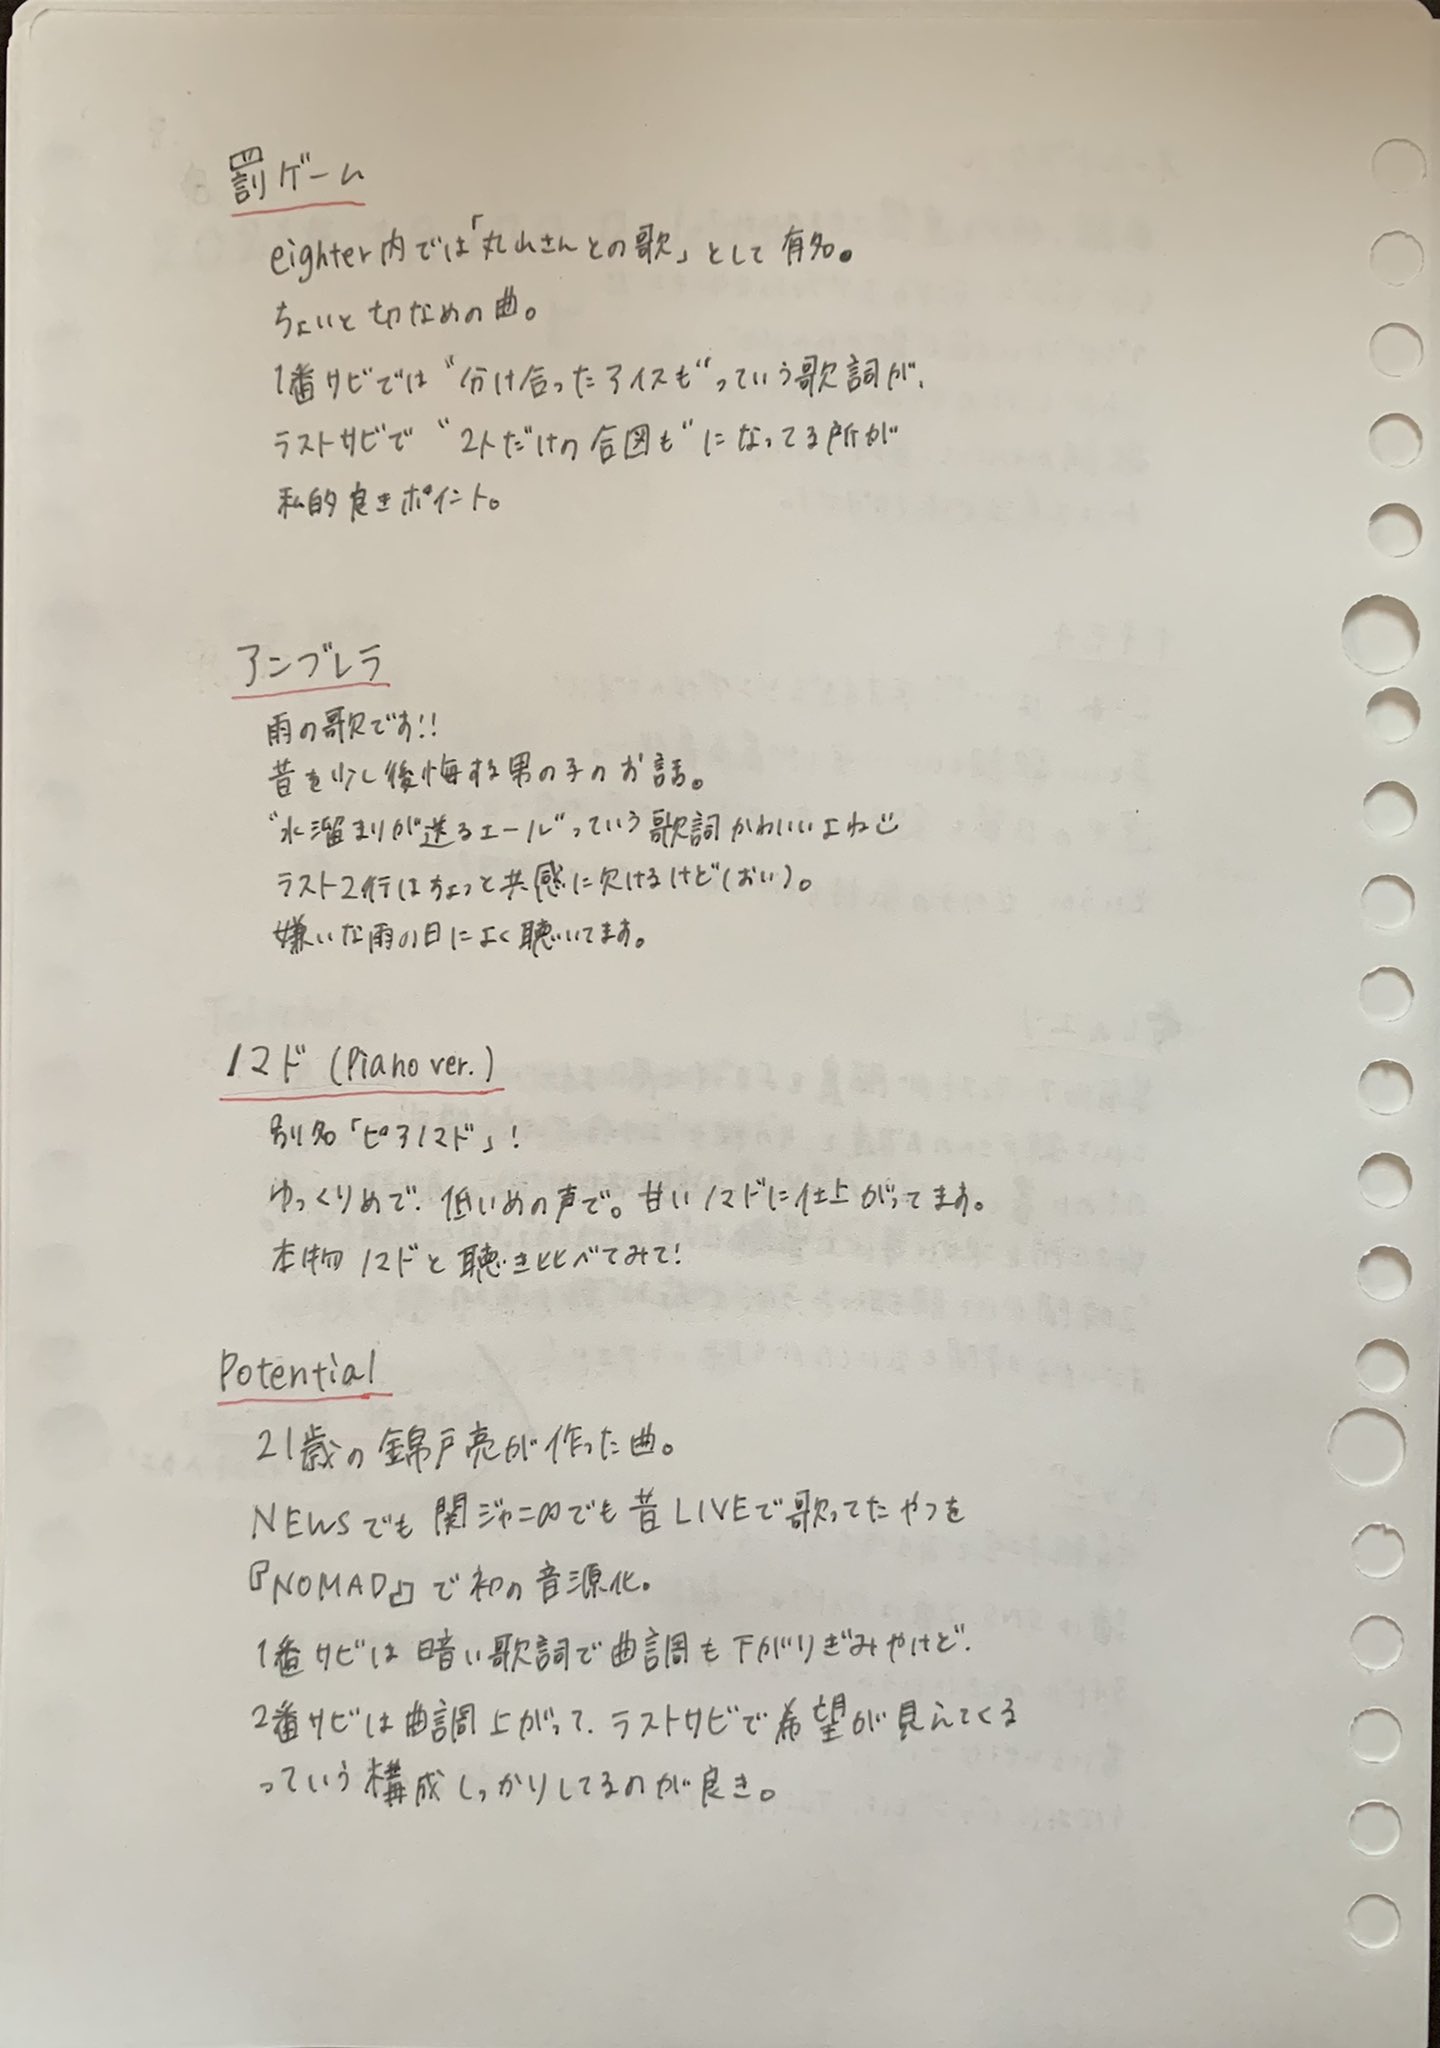 罰ゲーム
eighter内では「丸山さんとの歌」として有名。
ちょいと切なめの曲。
1番サビでは"分け合ったアイスも"っていう歌詞が、
ラストサビで"2人だけの合図も"になってる所が
私的良きポイント。
アンブレラ
雨の歌です!!
昔を少し後悔する男の子のお話。
"水溜まりが送るエール"っていう歌詞かわいいよね
ラスト2行はちょっと共感に欠けるけど(おい)。
嫌いな雨の日によく聴いてます。
ノマド(Piano ver.)
別名「ピアノマド」!
ゆっくりめで、低いめの声で。甘いノマドに仕上がってます。
本物ノマドと聴き比べてみて!
Potential
21歳の錦戸亮が作った曲。
NEWSでも関ジャニ∞でも昔LIVEで歌ってたやつを
『NOMAD』で初の音源化。
1番サビは暗い歌詞で曲調も下がりぎみやけど、
2番サビは曲調上がって、ラストサビで希望が見えてくる
っていう構成しっかりしてるのが良き。